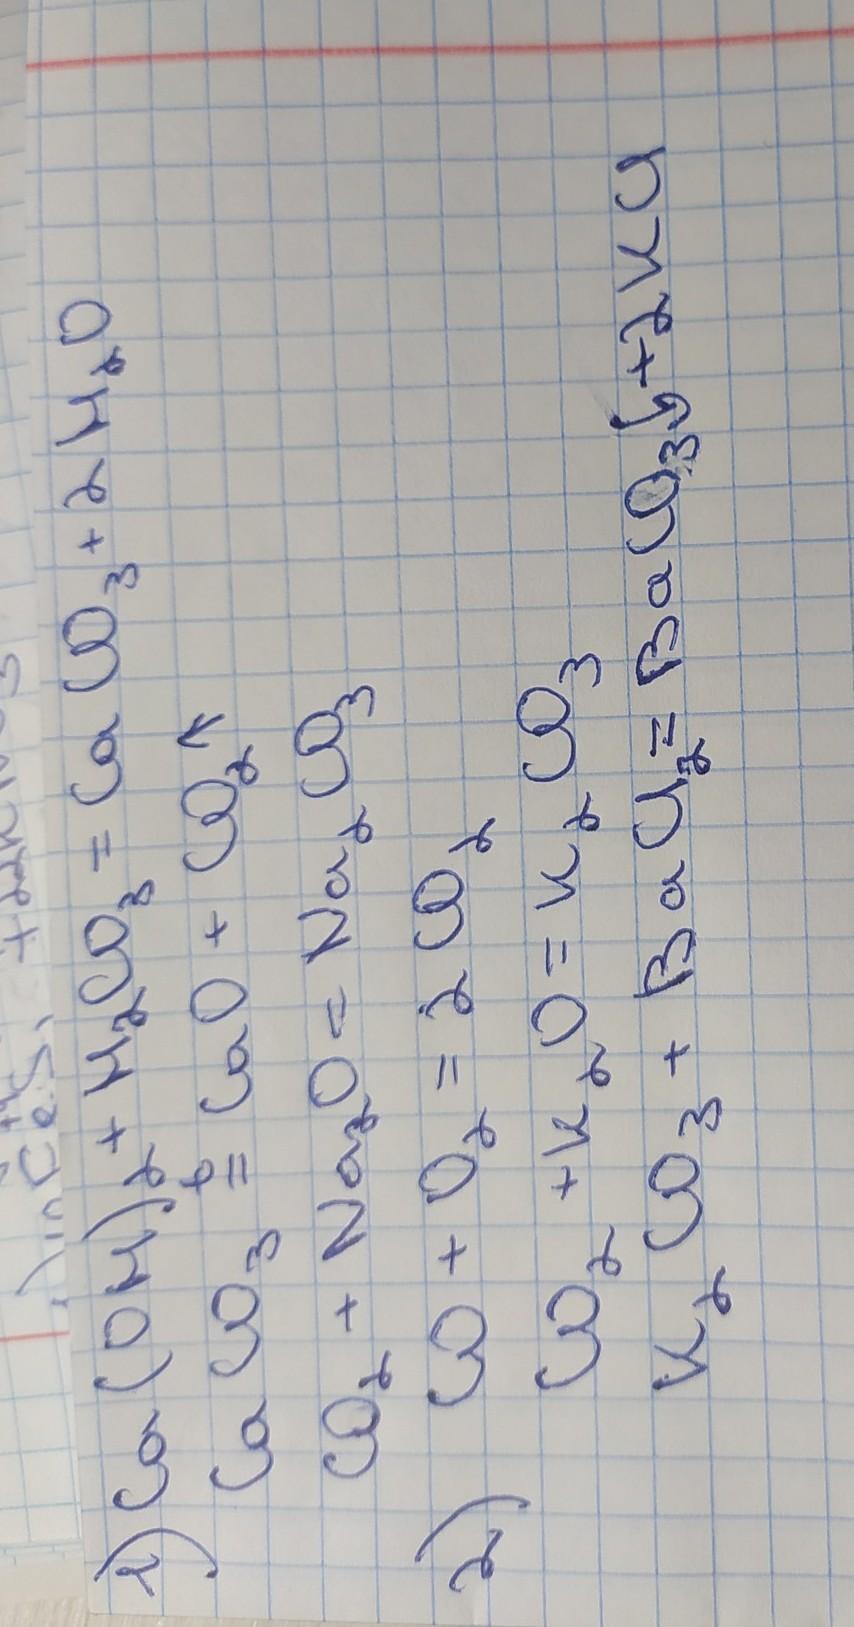 1) Ca(OH)₂ + H₂CO₃ = CaCO₃ + 2H₂O
CaCO₃ =ᵗ CaO + CO₂↑
CO₂ + Na₂O = Na₂CO₃
2) CO + O₂ = 2CO₂
CO₂ + K₂O = K₂CO₃
K₂CO₃ + BaCl₂ = BaCO₃↓ + 2KCl